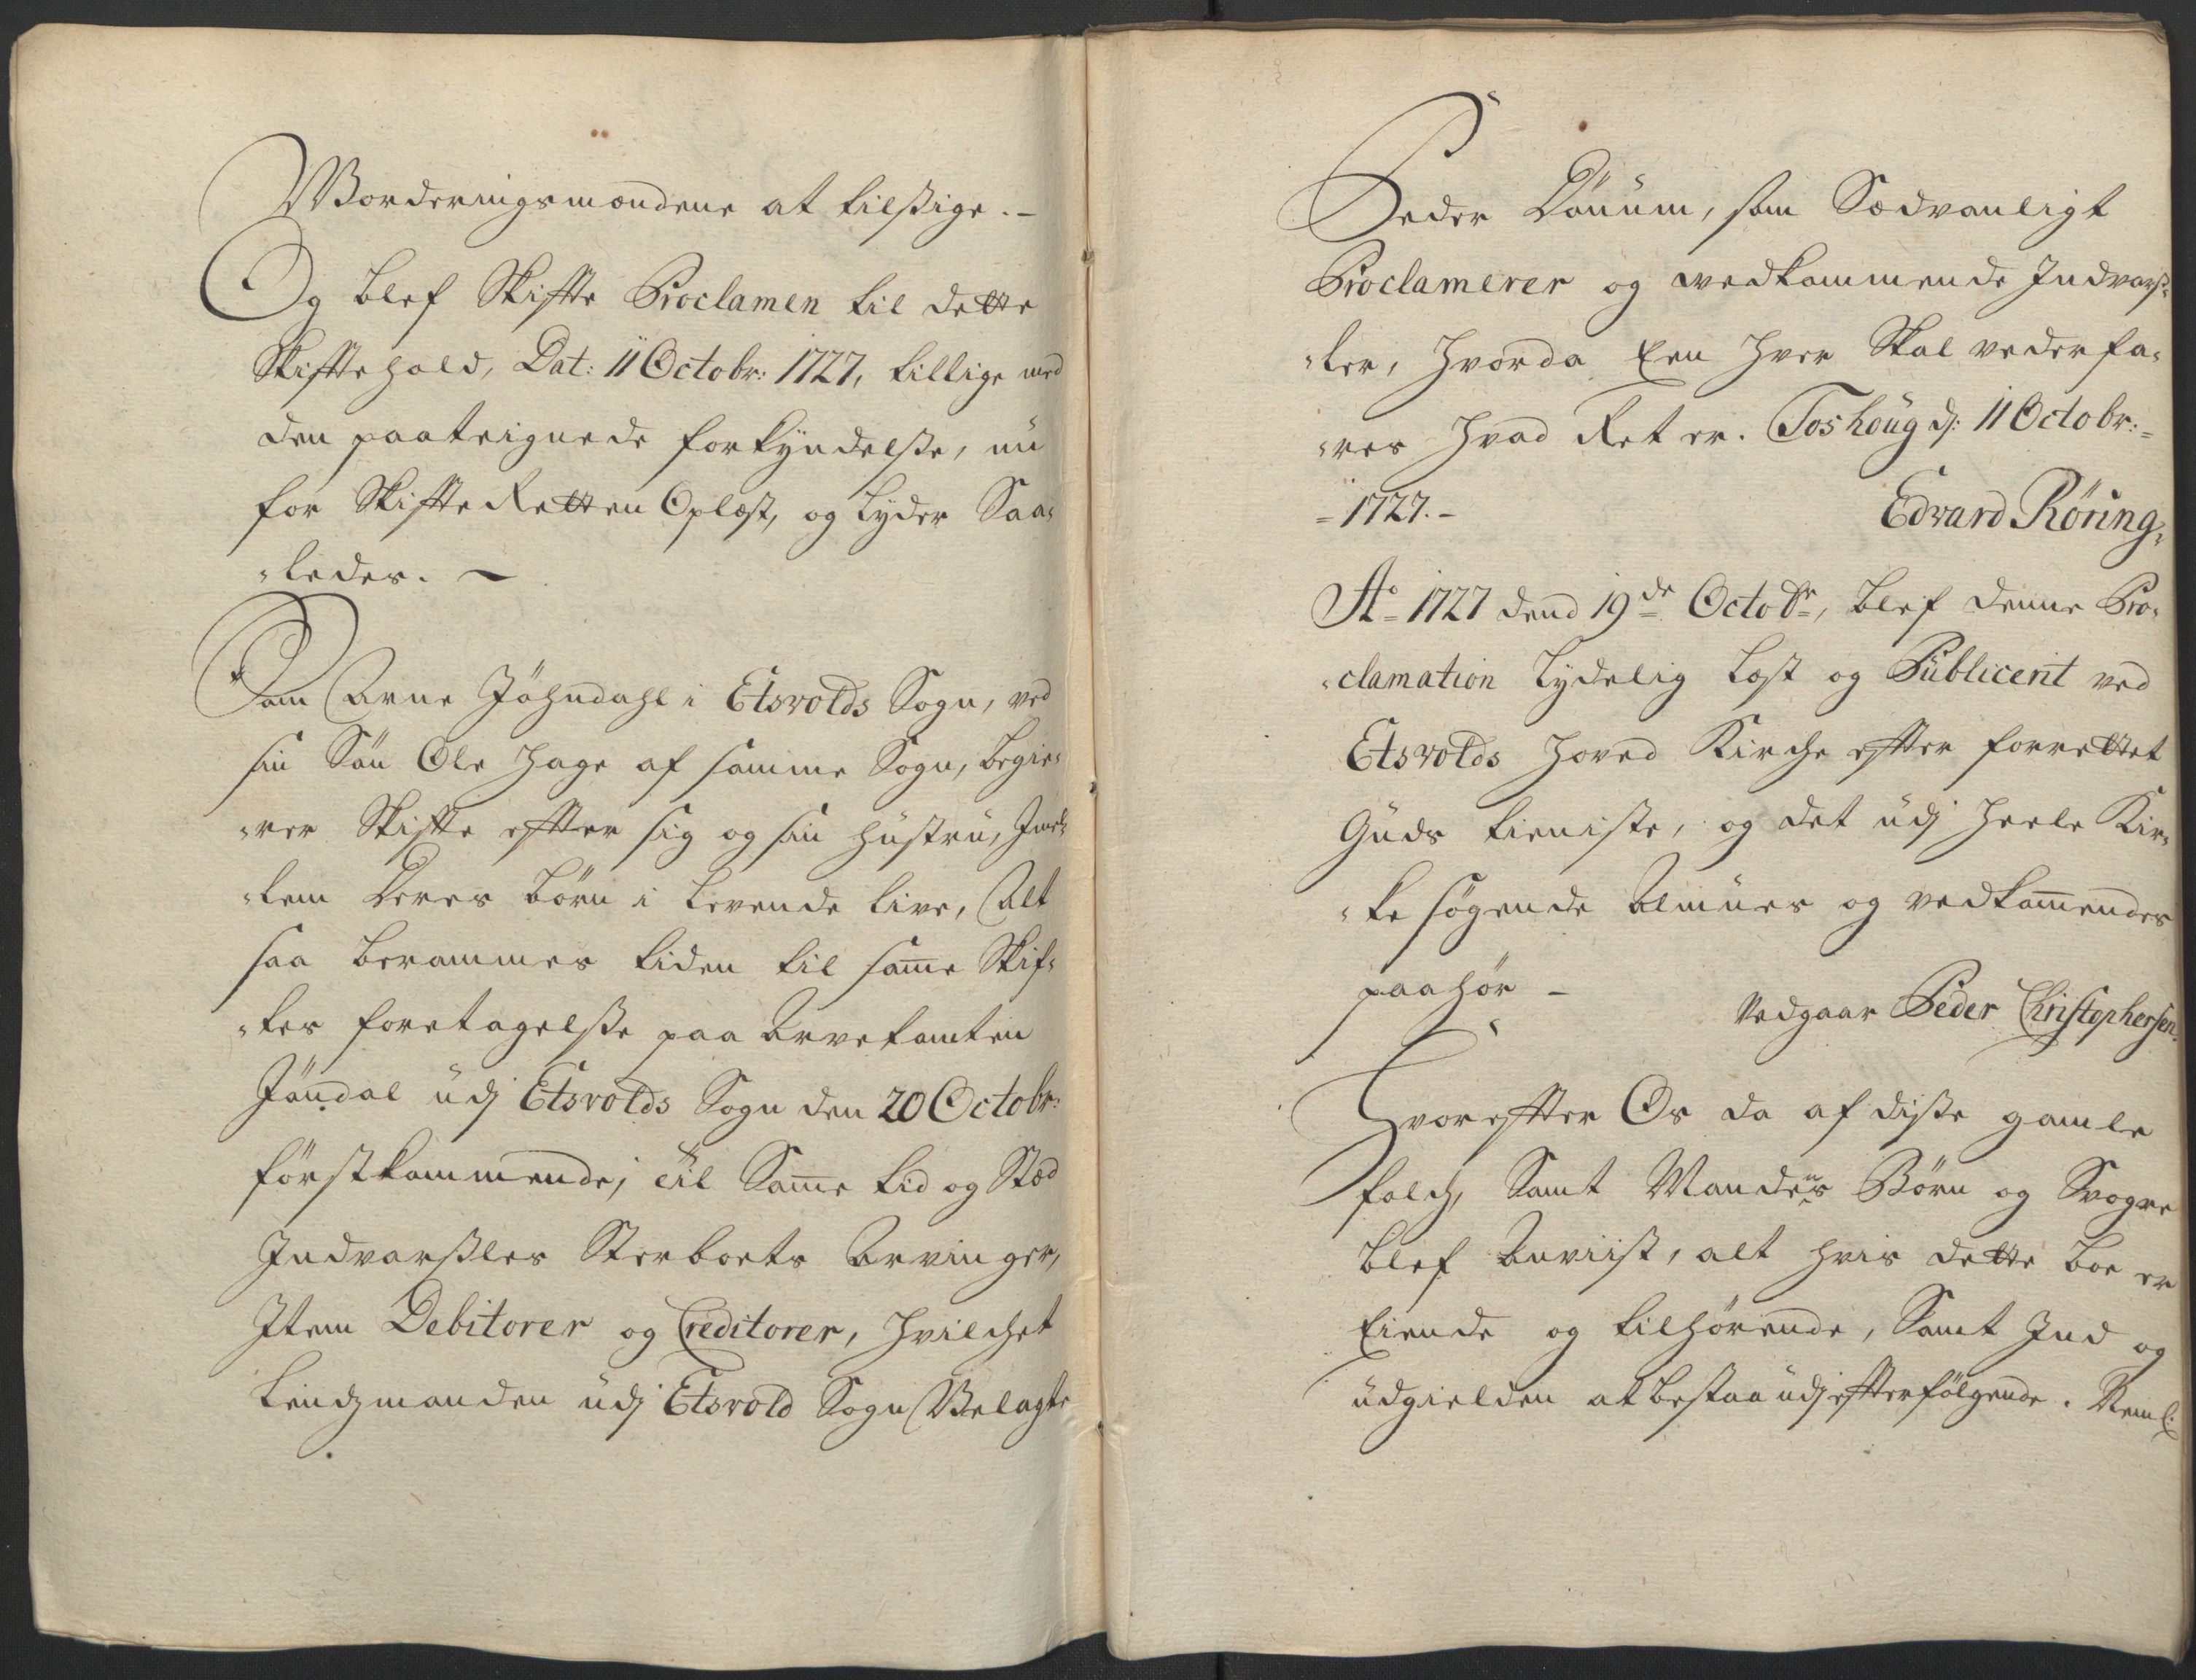 Worderingsmændene at tilßige.-
Og blef Skifte Proclamen til dette
Skiftehold, Dat: 11 Octobr: 1727, tillige med
den paateignede forkyndelße, nu
for Skifte Retten Oplæst, og lyder Saa-
-ledes. -
Som Arne Jöhndahl i Etsvolds Sogn, ved
sin Sön Ole Hage af samme Sogn, begie-
-rer Skifte efter sig og sin hustru, Jmel-
-lem Deres börn i levende live, Alt
saa berammes tiden til same Skif-
-tes foretagelße paa Arvetomten
Jöndal udj Etsvolds Sogn den 20 Octobr:
förstkommende; til Same tid og Stæd
Indvarßles Sterboets Arvinger,
Item Debitorer og Creditorer, hvilchet
Lendsmanden udj Etsvold Sogn Velagte
Peder Lönum, som Sædvanligt
Proclamerer og vedkommende Indvarß-
-ler, hvorda Een hver Skal vederfa-
-res hvad Ret er. Toshoug d: 11 Octobr:-
-1727.- Edvard Röring,
Ao 1727 dend 19de Octobr, blef denne Pro-
-clamation lydelig læst og Publicerit ved
Etsvolds Hoved Kirche efter forrettet
Guds tieniste, og det udj heele Kir-
-ke søgende Almues og vedkomendes
paahör - Vedgaar Peder Christophersen.
Hvorefter Os da af diße gamle
folch, Samt Mandens Börn og Svogre
blef Anviist, alt hvis dette boe er
Eiende og tilhörende, Samt Ind og
udgielden at bestaa udj efterfölgende. Neml: